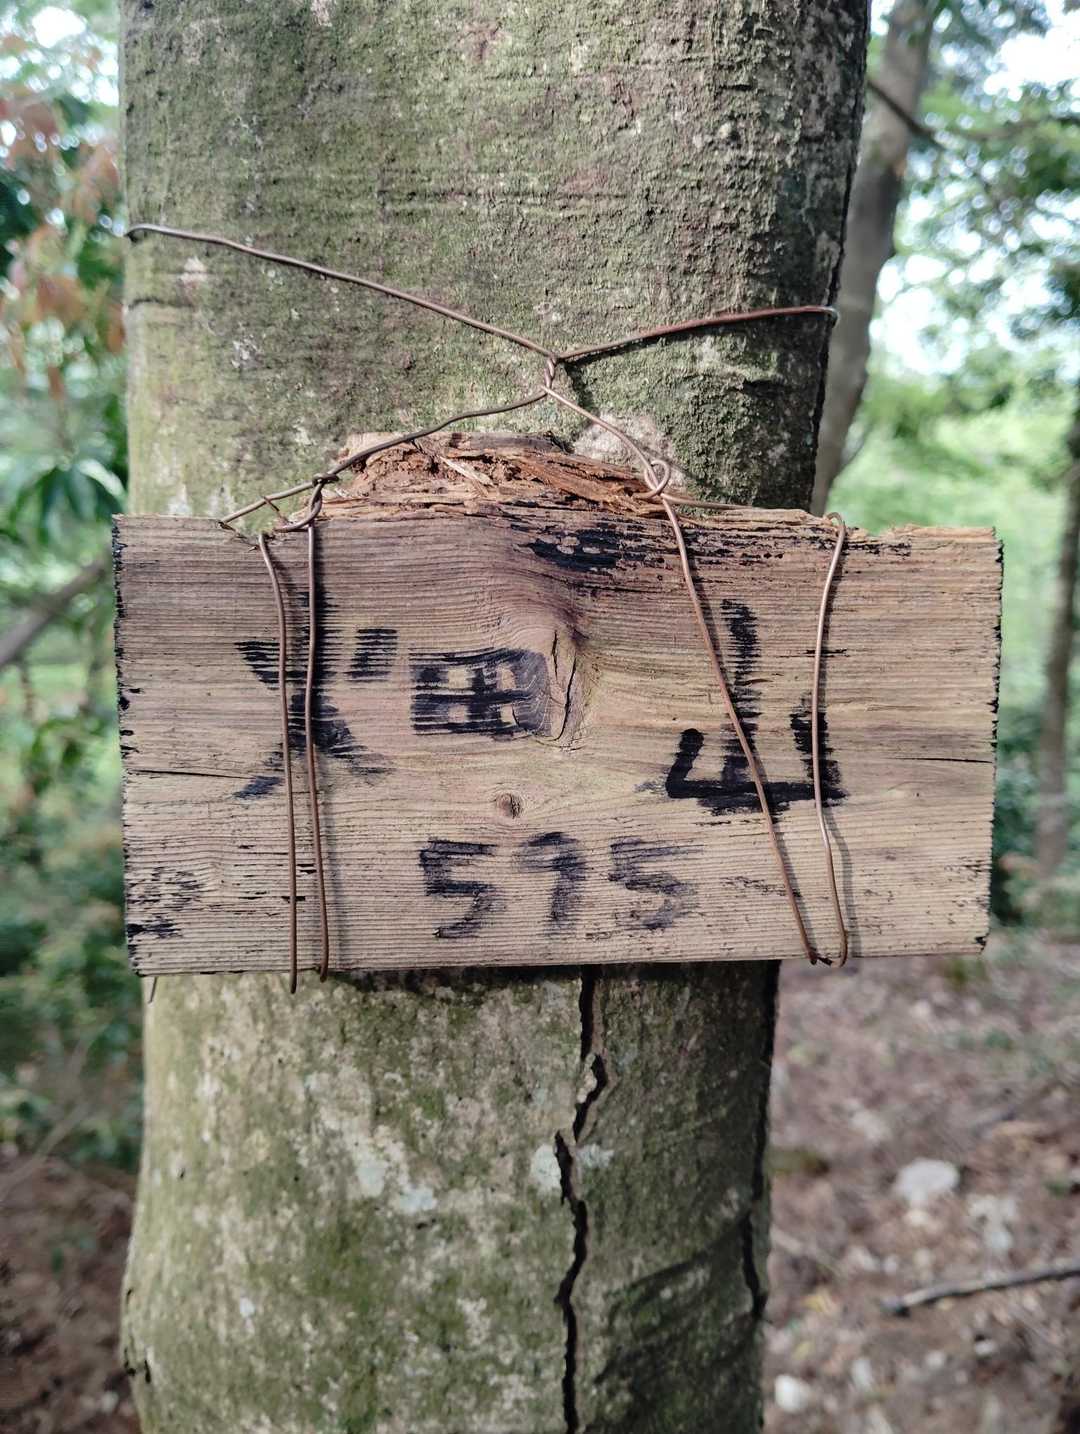 畑山
595